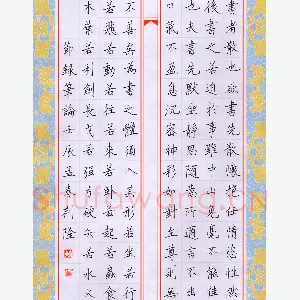 書者散也欲書先散懷抱任情恣性然
後書之若迫於事雖中山兔豪不能佳
也夫書先默坐靜思隨意所適言不出
口氣不盈息沉密神彩如對至尊則無
不善矣為書之體須入其形若坐若行
若飛若動若往若來若臥若起若蟲食
木葉若利劍長戈若強弓硬矢若水火
節錄筆論壬辰孟春荊隆
Shufawang.CN